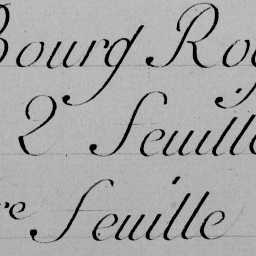 Bourg Roy
2 feuille
re feuille